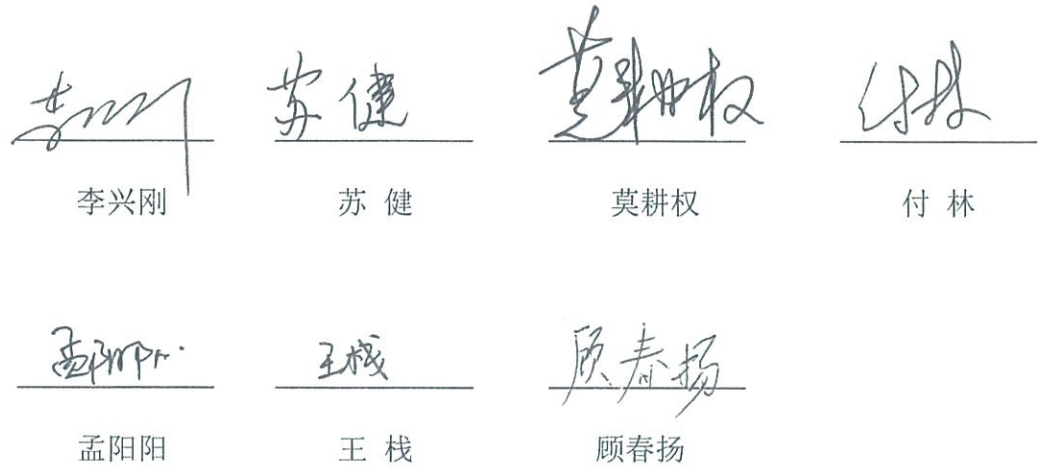 李兴刚 苏健 莫耕权 付林
李兴刚 苏 健 莫耕权 付 林
孟阳阳 王栈 顾春扬
孟阳阳 王 栈 顾春扬